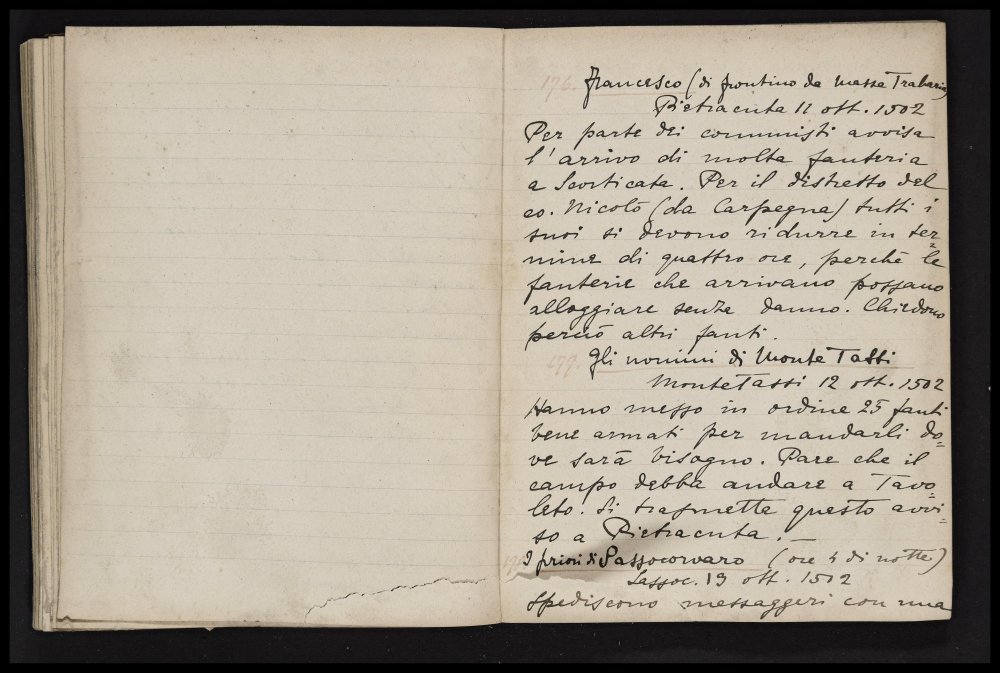 176. Francesco (di Frontino da Massa Trabaria
Pietracuta 11 ott. 1502
Per parte dei commissi avvisa
l'arrivo di molta fanteria
a Scorticata. Per il distretto del
co. Nicolò (da Carpegna) tutti i
suoi si devono ridurre in ter=
mine di quattro ore, perchè le
fanterie che arrivano possano
alloggiare senza danno. Chiedono
perciò altri fanti.
177. Gli uomini di Monte Tassi
Monte Tassi 12 ott. 1502
Hanno messo in ordine 25 fanti
bene armati per mandarli do=
ve sarà bisogno. Pare che il
campo debba andare a Tavo=
leto. Si trasmette questo avvi=
so a Pietracuta.
I priori di Sassocorvaro (ore 4 di notte)
Sassoc. 13 ott. 1502
Spediscono messaggeri con una